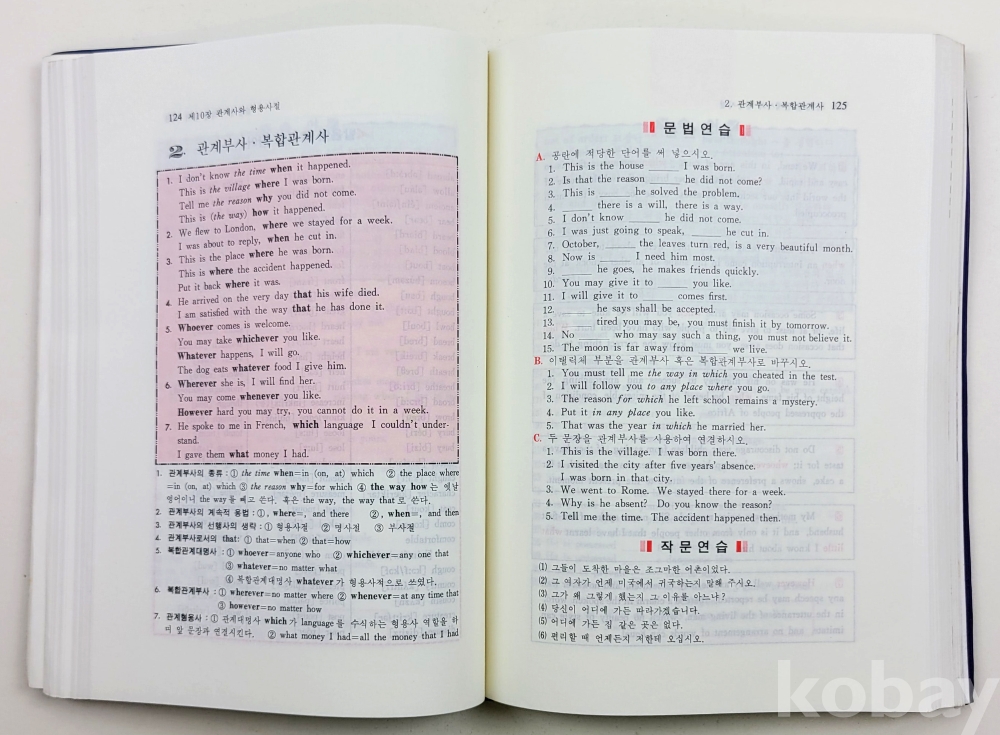 124 제10장 관계사와 형용사절
2. 관계부사 · 복합관계사
1. I don't know the time when it happened.
This is the village where I was born.
Tell me the reason why you did not come.
This is (the way) how it happened.
2. We flew to London, where we stayed for a week.
I was about to reply, when he cut in.
3. This is the place where he was born.
This is where the accident happened.
Put it back where it was.
4. He arrived on the very day that his wife died.
I am satisfied with the way that he has done it.
5. Whoever comes is welcome.
You may take whichever you like.
Whatever happens, I will go.
The dog eats whatever food I give him.
6. Wherever she is, I will find her.
You may come whenever you like.
However hard you may try, you cannot do it in a week.
7. He spoke to me in French, which language I couldn't under-
stand.
I gave them what money I had.
1. 관계부사의 종류: ① the time when=in (on, at) which ② the place where
=in (on, at) which ③ the reason why=for which ④ the way how는 옛날
영어이니 the way를 빼고 쓴다. 혹은 the way, the way that로 쓴다.
2. 관계부사의 계속적 용법: ①, where=, and there ②, when=, and then
3. 관계부사의 선행사의 생략: ① 형용사절 ② 명사절 ③ 부사절
4. 관계부사로서의 that: ① that=when ② that=how
5. 복합관계대명사: ① whoever=anyone who ② whichever=any one that
③ whatever=no matter what
④ 복합관계대명사 whatever가 형용사적으로 쓰였다.
6. 복합관계부사: ① wherever=no matter where ② whenever=at any time that
③ however=no matter how
7. 관계형용사: ① 관계대명사 which가 language를 수식하는 형용사 역할을 하
며 앞 문장과 연결시킨다. ② what money I had=all the money that I had
2. 관계부사 · 복합관계사 125
문법연습
A. 공란에 적당한 단어를 써 넣으시오.
1. This is the house ______ I was born.
2. Is that the reason ______ he did not come?
3. This is ______ he solved the problem.
4. ______ there is a will, there is a way.
5. I don't know ______ he did not come.
6. I was just going to speak, ______ he cut in.
7. October, ______ the leaves turn red, is a very beautiful month.
8. Now is ______ I need him most.
9. ______ he goes, he makes friends quickly.
10. You may give it to ______ you like.
11. I will give it to ______ comes first.
12. ______ he says shall be accepted.
13. ______ tired you may be, you must finish it by tomorrow.
14. No ______ who may say such a thing, you must not believe it.
15. The moon is far away from ______ we live.
B. 이탤릭체 부분을 관계부사 혹은 복합관계부사로 바꾸시오.
1. You must tell me the way in which you cheated in the test.
2. I will follow you to any place where you go.
3. The reason for which he left school remains a mystery.
4. Put it in any place you like.
5. That was the year in which he married her.
C. 두 문장을 관계부사를 사용하여 연결하시오.
1. This is the village. I was born there.
2. I visited the city after five years' absence.
I was born in that city.
3. We went to Rome. We stayed there for a week.
4. Why is he absent? Do you know the reason?
5. Tell me the time. The accident happened then.
작문연습
(1) 그들이 도착한 마을은 조그마한 어촌이었다.
(2) 그 여자가 언제 미국에서 귀국하는지 말해 주시오.
(3) 그가 왜 그렇게 했는지 그 이유를 아느냐?
(4) 당신이 어디에 가든 따라가겠습니다.
(5) 어디에 가든 집 같은 곳은 없다.
(6) 편리할 때 언제든지 저한테 오십시오.
kobay